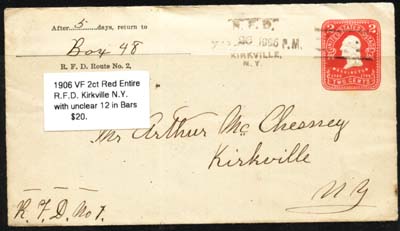 After 5 days, return to
Box 48
R. F. D. Route No. 2,
R. F. D.
1906 P.M.
KIRKVILLE,
N.Y.
UNITED STATES POSTAGE
2 2
WASHINGTON
TWO CENTS
1906 VF 2ct Red Entire
R.F.D. Kirkville N.Y.
with unclear 12 in Bars
$20.
Mr Arthur Mc Chessey
Kirkville
NY
R. F. D. No 1.